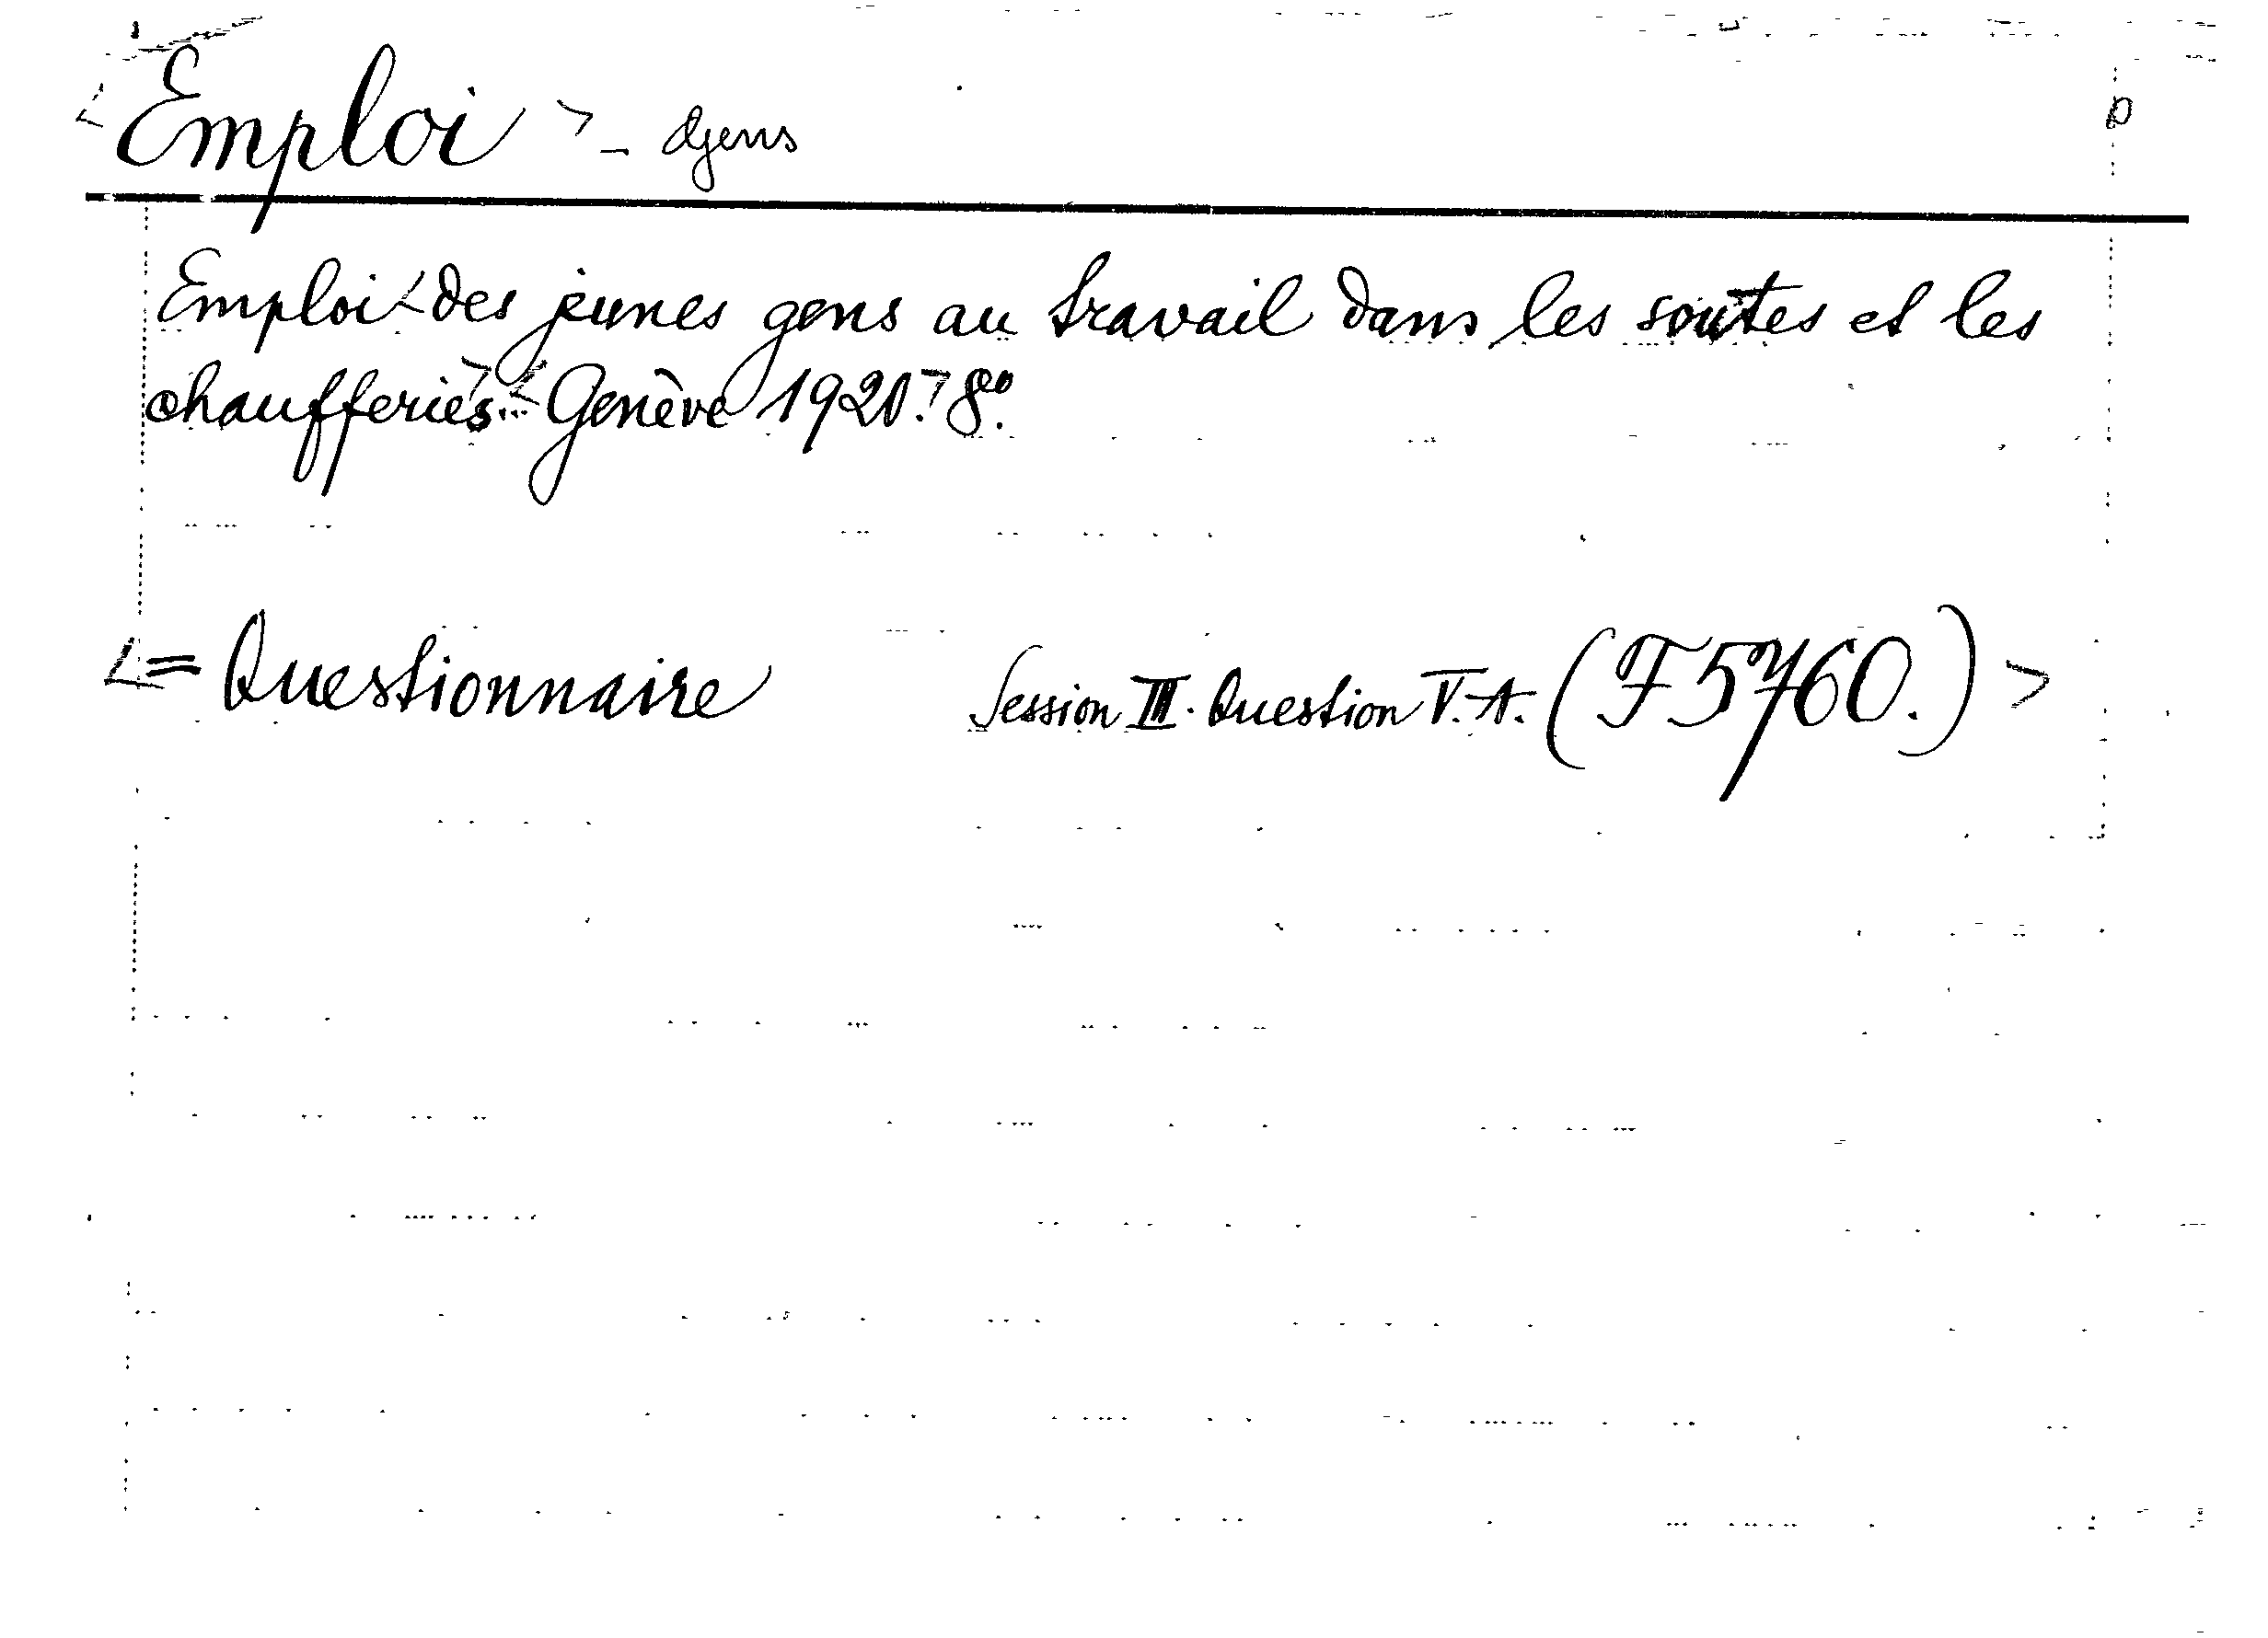 <Emploi> - djens
Emploi <des jeunes gens au travail dans les soutes et les
chaufferies> <Genève 1920.> 8°.
<= Questionnaire Session III. Question V.A. (F5760.)>